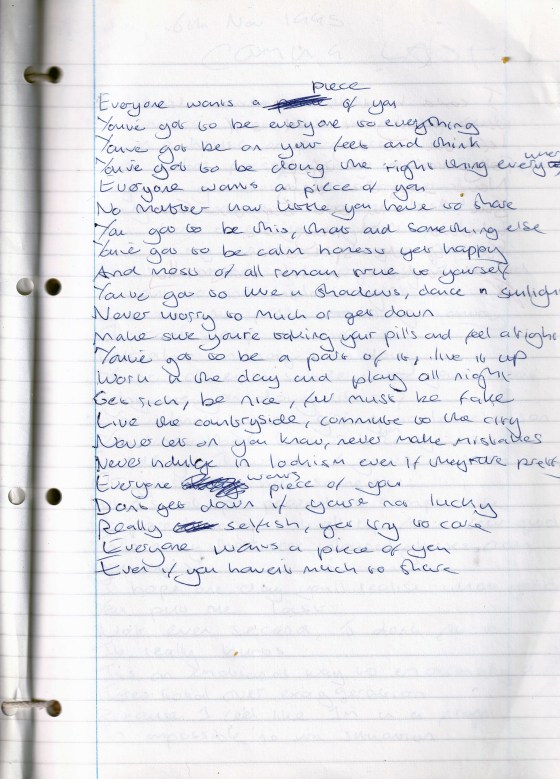 Everyone wants a piece of you
You've got to be everyone to everything
You've got be on your feet and think
You've got to be doing the right thing every
Everyone wants a piece of you
No matter how little you have to share
You got to be this, that and something else
You've got to be calm honest yet happy
And most of all remain true to yourself
You've got to live in shadows, dance in sunlight
Never worry to much or get down
Make sure you're taking your pills and feel alright
You've got to be a part of it, live it up
Work in the day and play all night
Get rich, be nice, fur must be fake
Live the countryside, commute to the city
Never let on you know, never make mistakes
Never indulge in lookism even if they're pretty
Everyone wants piece of you
Dont get down if you're not lucky
Really selfish, yet try to care
Everyone wants a piece of you
Even if you haven't much to share